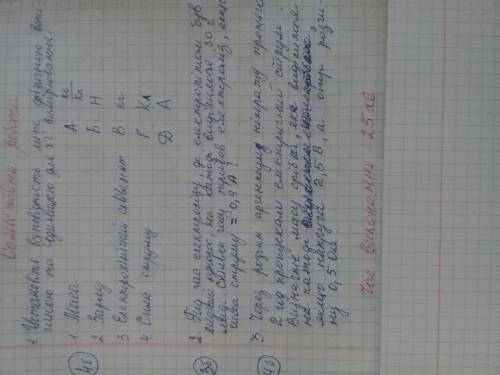 Самостійна робота
1. Установіть відповідність між фізичною вели-
чиною та одиницею для її вимірювання:
4б
1 Маса А кг/Кл
2 Заряд Б Н
3 Електрохімічний еквівалент В кг
4 Сила струму Г Кл
Д А
3б
2. Під час електролізу, де електролітом був
мідний купорос, на катоді виділилося 30 г
міді. Скільки часу тривав електроліз, якщо
сила струму = 0,9 А?
4б
3. Через розчин аргентуму нітрату протягом
2 год пропускали електричний струм.
Визначте масу срібла, яке виділилось
на катоді,
якщо напруга 2,5 В, а опір розчи-
ну 0,5 Ом.
Час виконання - 25 хв